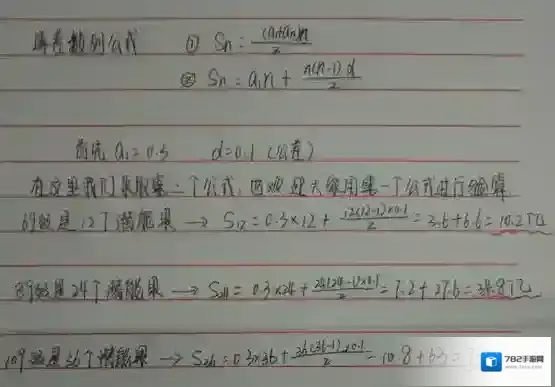 等差数列公式 ① Sn = (a1+an)n/2
② Sn = a1n + n(n-1)d/2
首先 a1=0.3 d=0.1 (公差)
在这里我们采取第二个公式,
69级是12个潜能果 → S12=0.3×12+12(12-1)×0.1/2=3.6+6.6=10.2亿
89级是24个潜能果 → S24=0.3×24+24(24-1)×0.1/2=7.2+27.6=34.8亿
109级是36个潜能果 → S36=0.3×36+36(36-1)×0.1/2=10.8+63=
7B2手游网